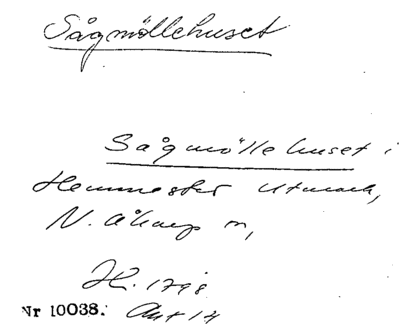 Sågmöllehuset
Sågmöllehuset i
Hemmestorp utmark,
N. Åkarp sn,
Hr. 1798
Nr 10038. Akt 14